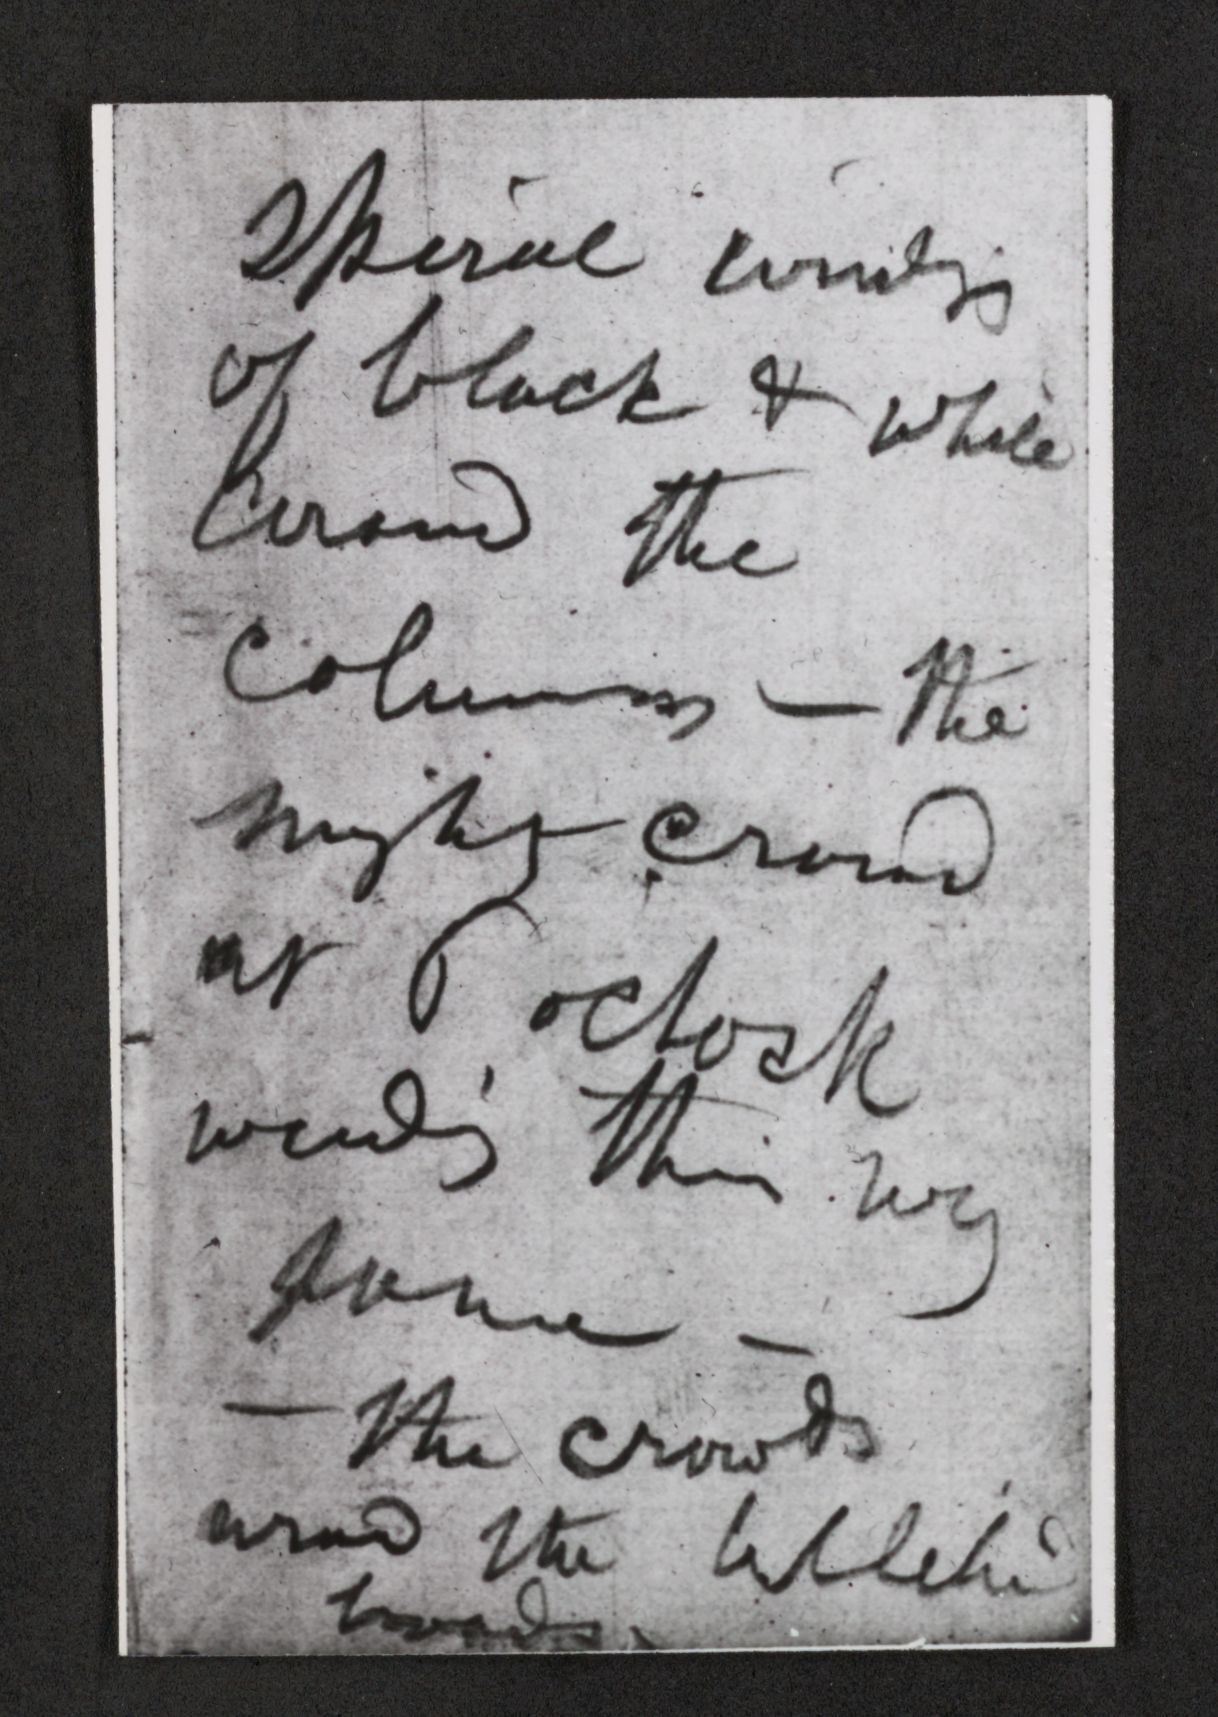 Spiral windings
of black & white
around the
columns — the
mighty crowd
at 6 oclock
wending this way
home —
— the crowds
around the bulletin
boards.